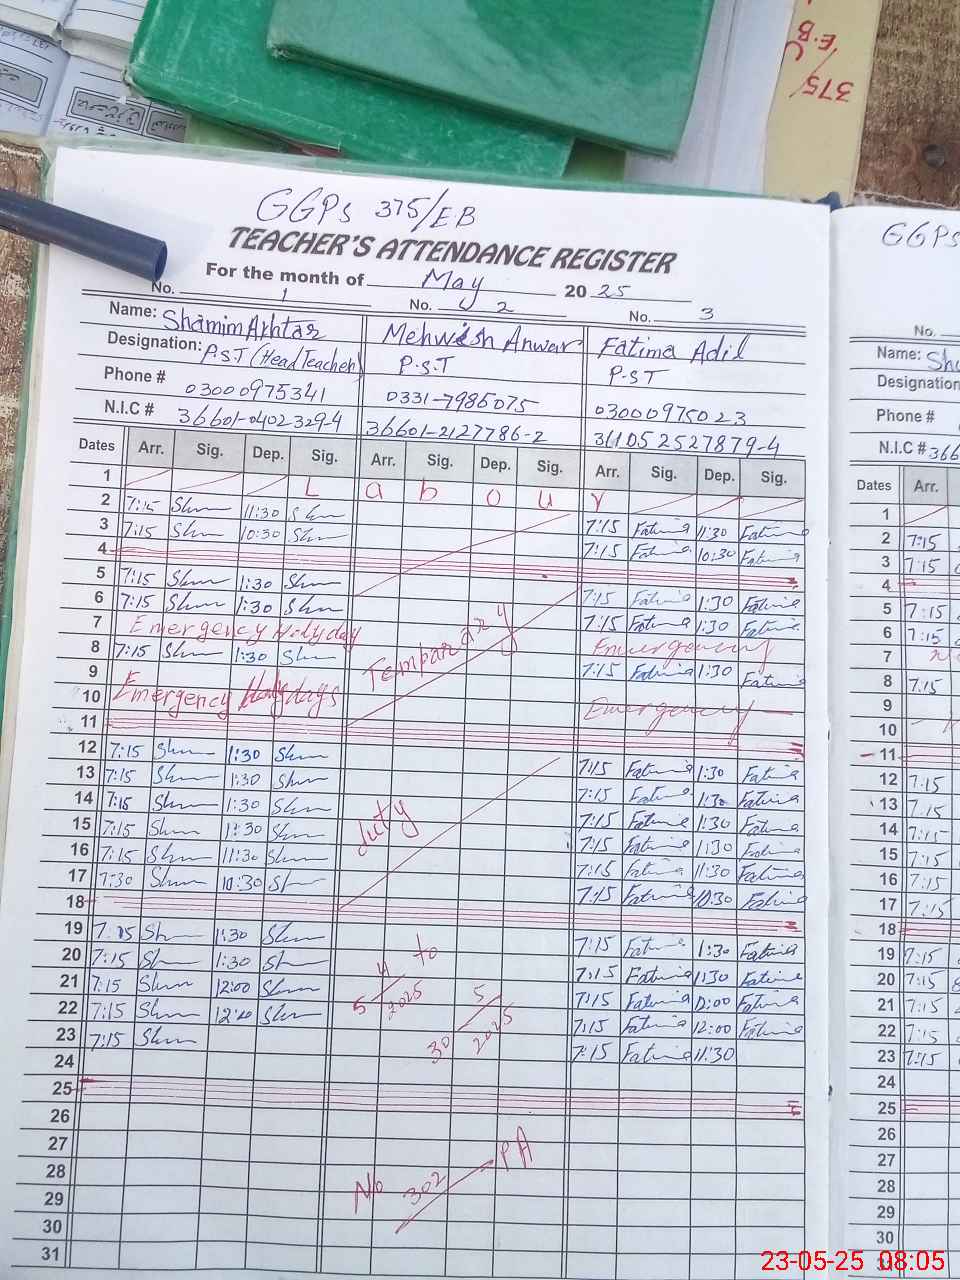 375/
E.B
GGPS 375/E.B
TEACHER'S ATTENDANCE REGISTER
For the month of May 2025
No. 1 No. 2 No. 3
Name: Shamim Akhtar Mehwish Anwar Fatima Adil
Designation: P.S.T (Head Teacher) P.S.T P.S.T
Phone # 03000975341 0331-7986075 03000975023
N.I.C # 36601-0402329-4 36601-2127786-2 361052527879-4
Dates Arr. Sig. Dep. Sig. Arr. Sig. Dep. Sig. Arr. Sig. Dep. Sig.
1 L a b o u r
2 7:15 Shm 11:30 Shm 7:15 Fatima 11:30 Fatima
3 7:15 Shm 10:30 Shm 7:15 Fatima 10:30 Fatima
4
5 7:15 Shm 1:30 Shm 7:15 Fatima 1:30 Fatima
6 7:15 Shm 1:30 Shm 7:15 Fatima 1:30 Fatima
7 Emergency Holyday Emergency
8 7:15 Shm 1:30 Shm Temparary 7:15 Fatima 1:30 Fatima
9
10 Emergency Holydays Emergency
11
12 7:15 Shm 1:30 Shm 7:15 Fatima 1:30 Fatima
13 7:15 Shm 1:30 Shm 7:15 Fatima 1:30 Fatima
14 7:15 Shm 1:30 Shm duty 7:15 Fatima 1:30 Fatima
15 7:15 Shm 1:30 Shm 7:15 Fatima 1:30 Fatima
16 7:15 Shm 11:30 Shm 7:15 Fatima 11:30 Fatima
17 7:30 Shm 10:30 Shm 7:15 Fatima 10:30 Fatima
18
19 7:15 Shm 1:30 Shm 7:15 Fatima 1:30 Fatima
20 7:15 Shm 1:30 Shm 5/4/2025 to 7:15 Fatima 1:30 Fatima
21 7:15 Shm 12:00 Shm 7:15 Fatima 12:00 Fatima
22 7:15 Shm 12:00 Shm 30/5/2025 7:15 Fatima 12:00 Fatima
23 7:15 Shm 7:15 Fatima 11:30
24
25
26
27
28 No 302 PA
29
30
31
GGPS
No.
Name: Sha
Designation
Phone #
N.I.C # 366
Dates Arr.
1
2 7:15
3 7:15
4
5 7:15
6 7:15
7
8 7:15
9
10
11
12 7:15
13 7:15
14 7:15
15 7:15
16 7:15
17 7:15
18
19 7:15
20 7:15
21 7:15
22 7:15
23 7:15
24
25
26
27
28
29
30
23-05-25 08:05